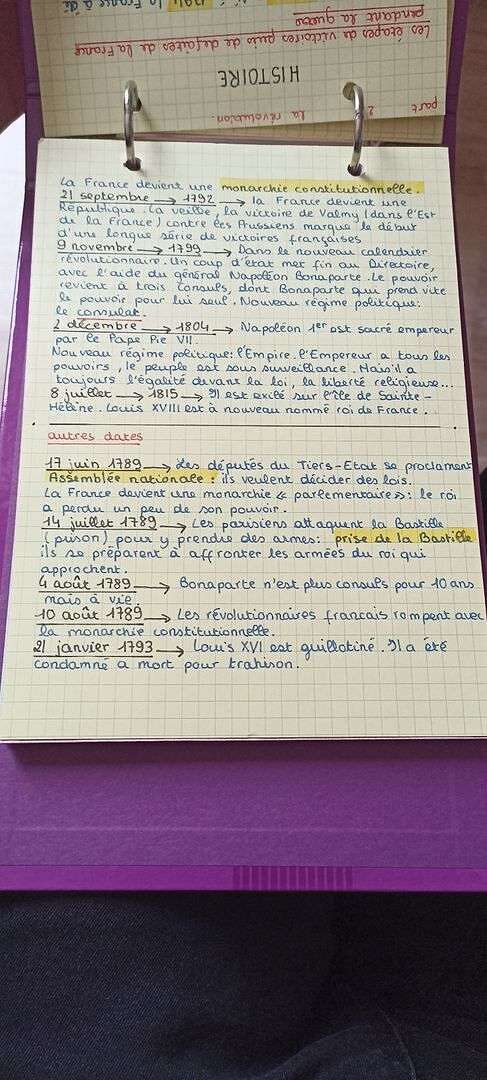 1791
la France a dé
Les étapes de victoires puis de défaites de la France
pendant la guerre
HISTOIRE
part 2 la révolution.
La France devient une monarchie constitutionnelle.
21 septembre → 1792 → la France devient une
République. La veille, la victoire de Valmy (dans l'Est
de la France) contre les Prussiens marque le début
d'une longue série de victoires françaises
9 novembre → 1799 → Dans le nouveau calendrier
révolutionnaire. Un coup d'état met fin au Directoire,
avec l'aide du général Napoléon Bonaparte. Le pouvoir
revient à trois consuls, dont Bonaparte qui prend vite
le pouvoir pour lui seul. Nouveau régime politique:
le consulat.
2 décembre → 1804 → Napoléon 1er est sacré empereur
par le Pape Pie VII.
Nouveau régime politique: l'Empire. l'Empereur a tous les
pouvoirs, le peuple est sous surveillance. Mais il a
toujours l'égalité devant la loi, la liberté religieuse...
8 juillet → 1815 → Il est exilé sur l'île de Sainte-
Hélène. Louis XVIII est à nouveau nommé roi de France.
autres dates
17 juin 1789 → Les députés du Tiers-Etat se proclament
Assemblée nationale: ils veulent décider des lois.
La France devient une monarchie « parlementaire »: le roi
a perdu un peu de son pouvoir.
14 juillet 1789 → Les parisiens attaquent la Bastille
(prison) pour y prendre des armes: prise de la Bastille
ils se préparent à affronter les armées du roi qui
approchent.
4 août 1789 → Bonaparte n'est plus consuls pour 10 ans
mais à vie.
10 août 1789 → Les révolutionnaires francais rompent avec
la monarchie constitutionnelle.
21 janvier 1793 → Louis XVI est guillotiné. Il a été
condamné a mort pour trahison.